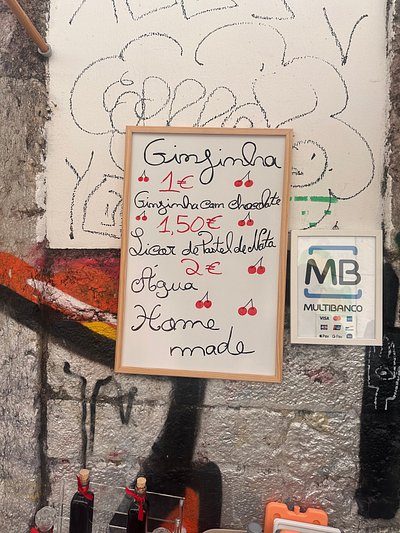 Ginjinha
1€
Ginjinha com chocolate
1,50€
Licor de Pastel de Nata
2€
Água
Home
made
MB
MULTIBANCO
VISA
Pay G Pay